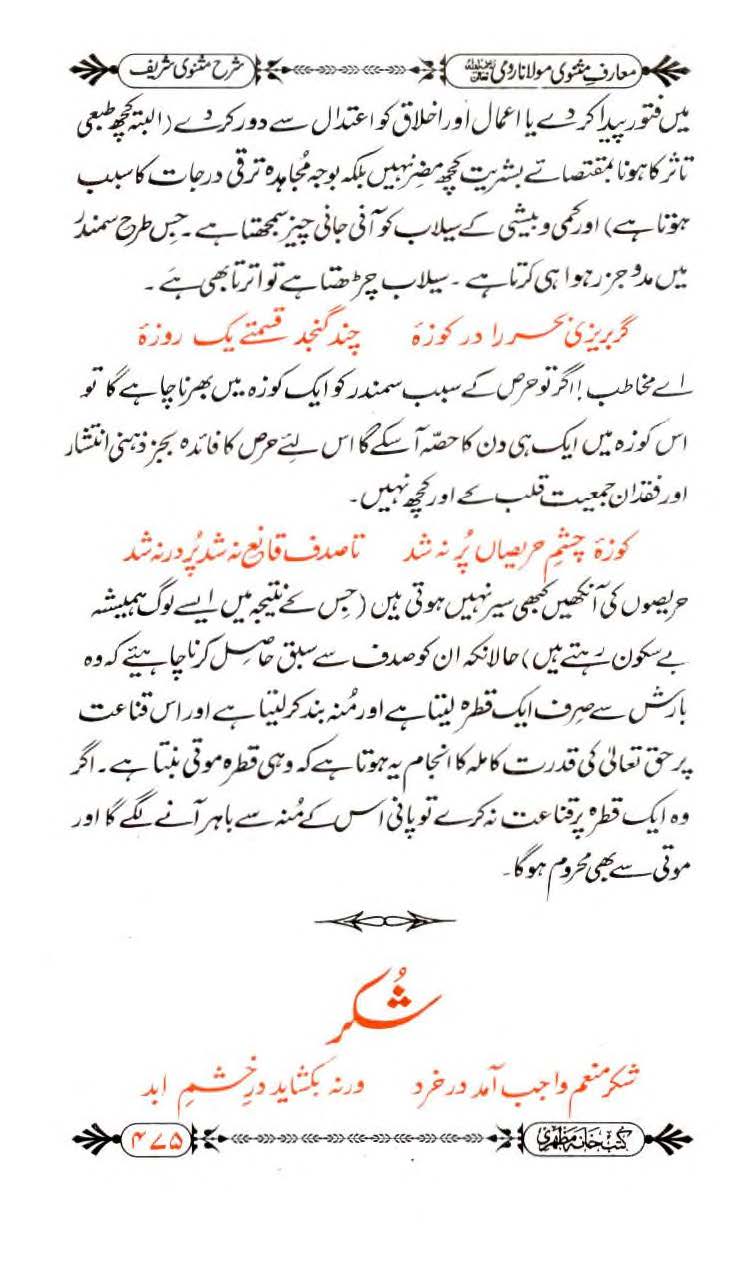 معارفِ مثنوی مولانا رومی رحمۃ اللہ علیہ
شرح مثنوی شریف
میں فتور پیدا کر دے یا اعمال اور اخلاق کو اعتدال سے دور کر دے (البتہ کچھ طبعی
تاثر کا ہونا بمقتضائے بشریت کچھ مضر نہیں بلکہ بوجہ مُجاہدہ ترقی درجات کا سبب
ہوتا ہے) اور کمی و بیشی کے سیلاب کو آنی جانی چیز سمجھتا ہے۔ جس طرح سمندر
میں مد و جزر ہوا ہی کرتا ہے۔ سیلاب چڑھتا ہے تو اترتا بھی ہے۔
گر بریزی بحر را در کوزۂ چند گنجد قسمتے یک روزۂ
اے مخاطب! اگر تو حرص کے سبب سمندر کو ایک کوزہ میں بھرنا چاہے گا تو
اس کوزہ میں ایک ہی دن کا حصّہ آ سکے گا اس لئے حرص کا فائدہ بجز ذہنی انتشار
اور فقدان جمعیت قلب کے اور کچھ نہیں۔
کوزۂ چشمِ حریصاں پُر نہ شد تا صدف قانع نہ شد پُر در نہ شد
حریصوں کی آنکھیں کبھی سیر نہیں ہوتی ہیں (جس کے نتیجہ میں ایسے لوگ ہمیشہ
بے سکون رہتے ہیں) حالانکہ ان کو صدف سے سبق حاصل کرنا چاہیئے کہ وہ
بارش سے صِرف ایک قطرہ لیتا ہے اور مُنہ بند کر لیتا ہے اور اس قناعت
پر حق تعالیٰ کی قدرت کاملہ کا انجام یہ ہوتا ہے کہ وہی قطرہ موتی بنتا ہے۔ اگر
وہ ایک قطرہ پر قناعت نہ کرے تو پانی اس کے مُنہ سے باہر آنے لگے گا اور
موتی سے بھی محروم ہو گا۔
شُکر
شکر منعم واجب آمد در خرد ورنہ بکشاید درِ خشمِ ابد
کتب خانہ مظہری
۴۷۵